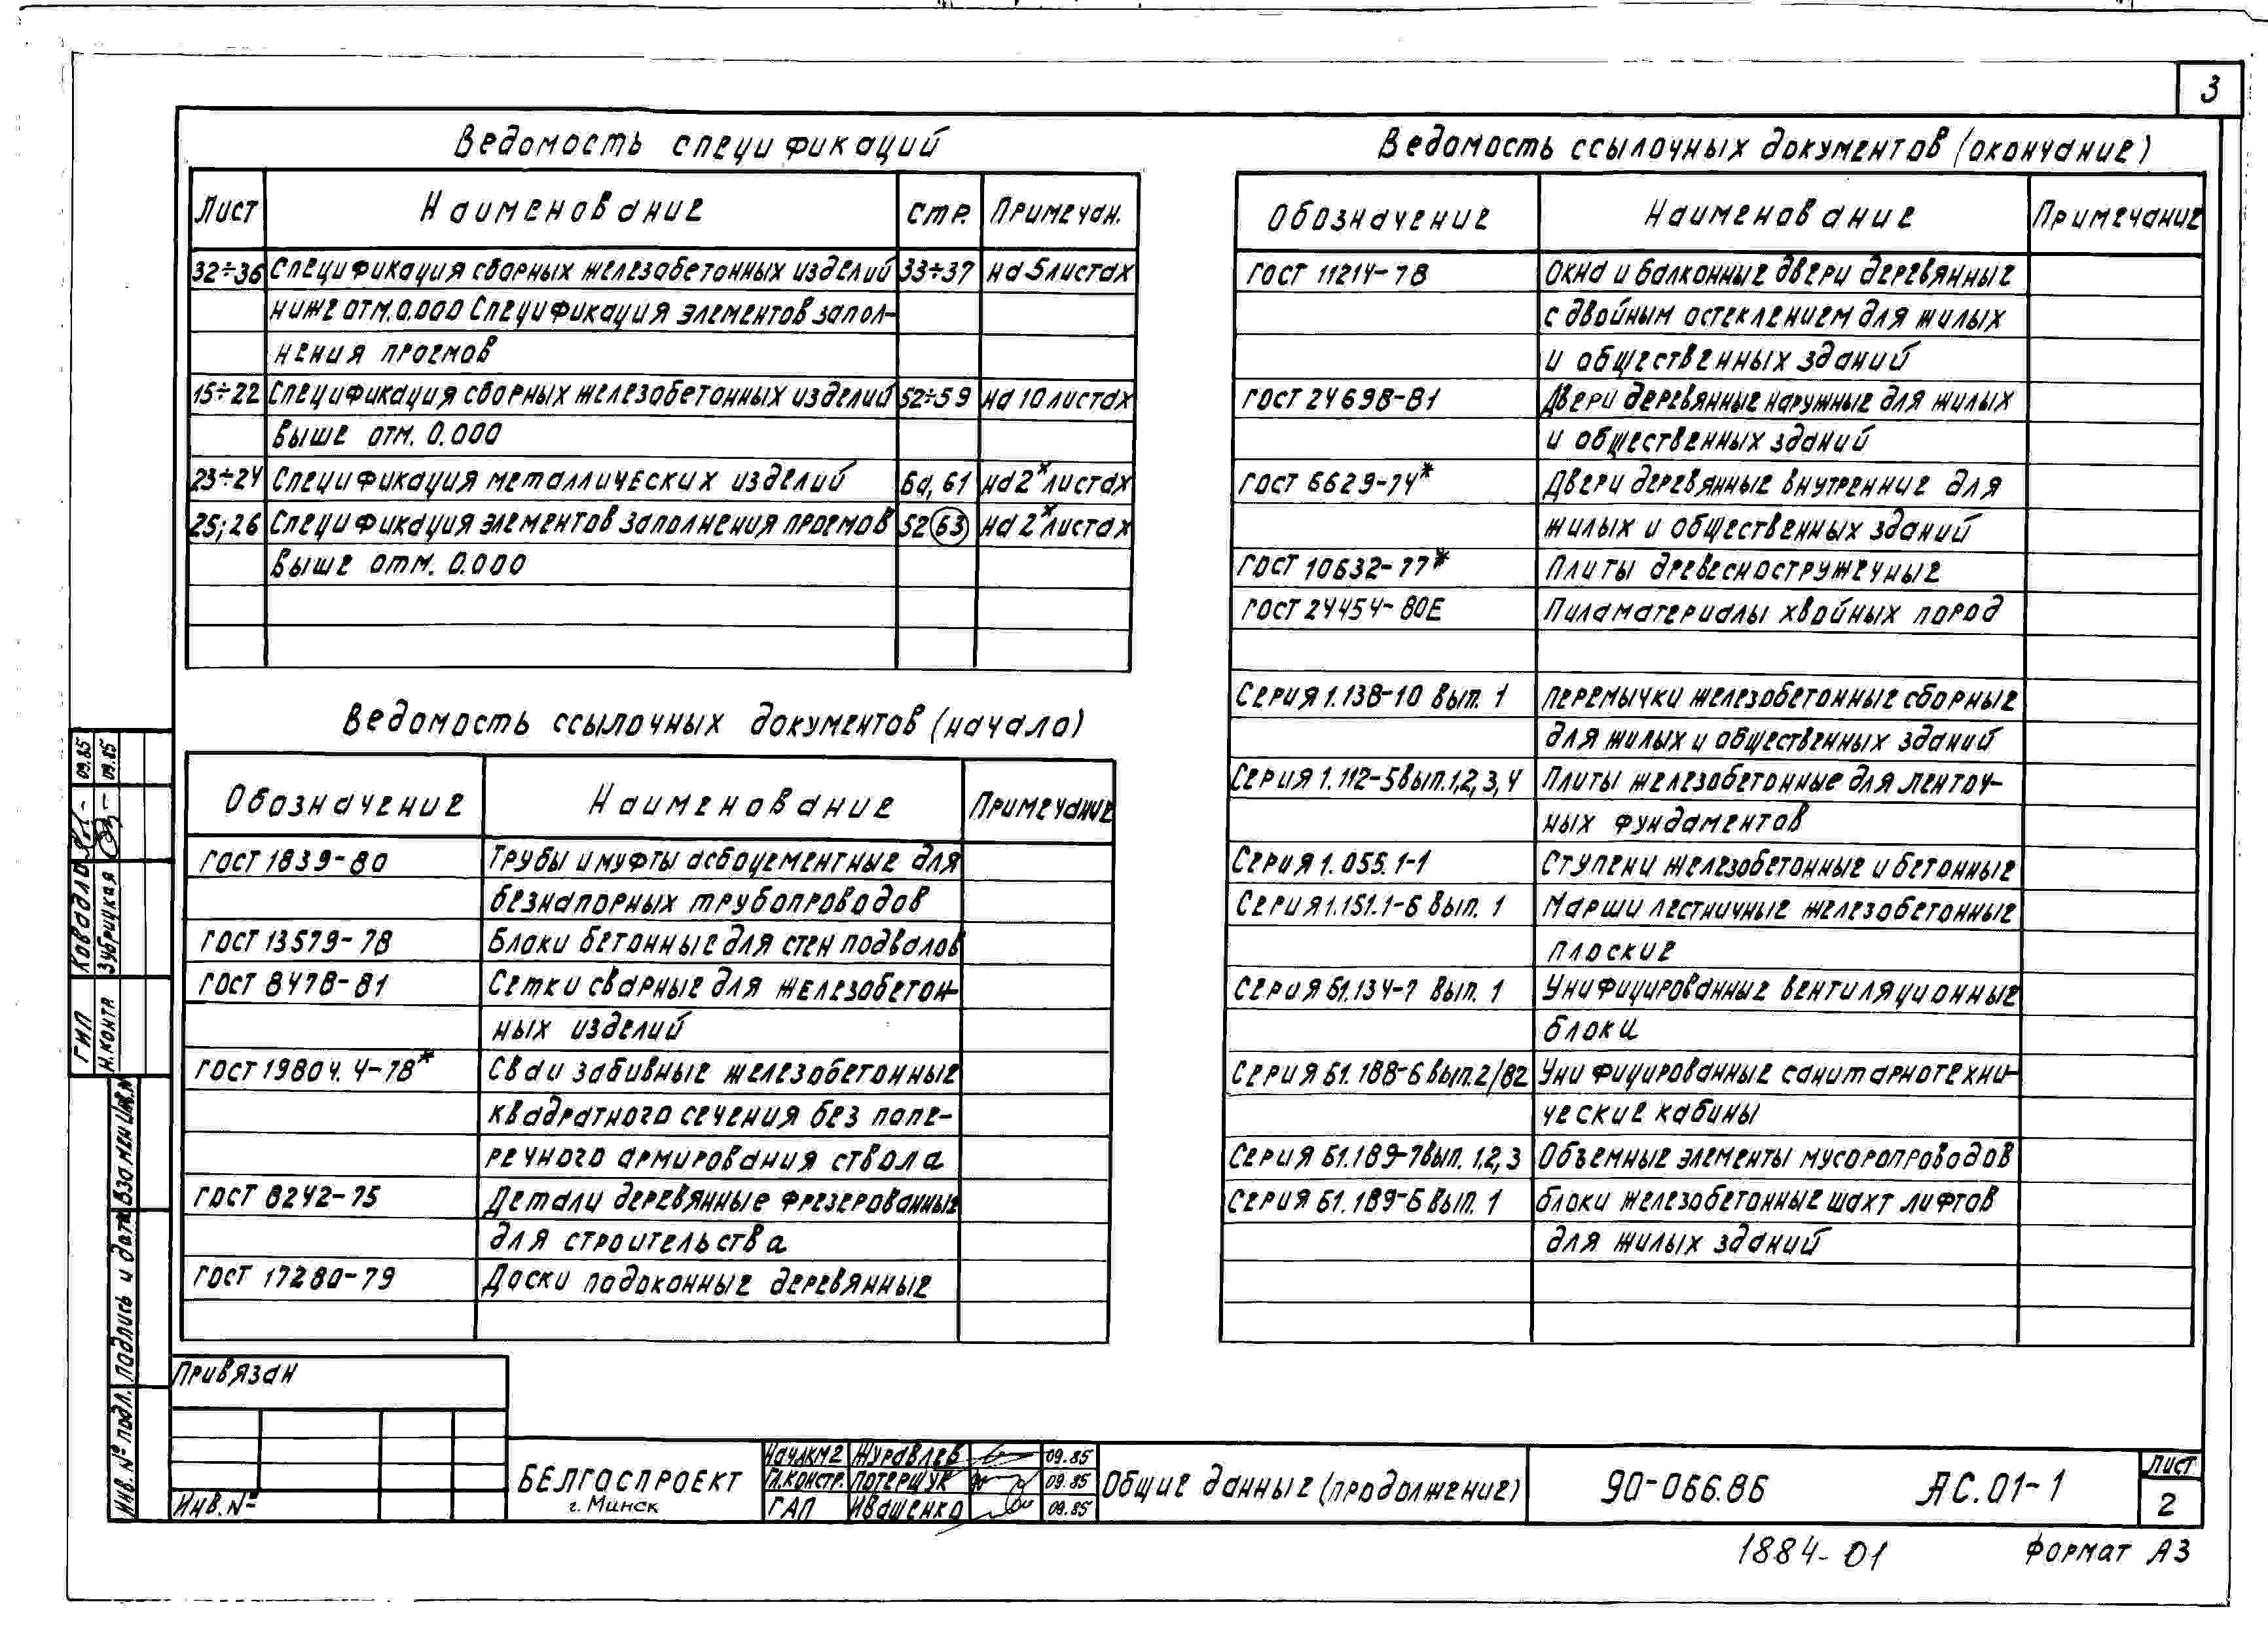 3
Ведомость спецификаций
Лист Наименование Стр. Примечан.
32÷36 Спецификация сборных железобетонных изделий 33÷37 на 5 листах
ниже отм. 0.000 Спецификация элементов запол-
нения проемов
15÷22 Спецификация сборных железобетонных изделий 52÷59 на 10 листах
выше отм. 0.000
23÷24 Спецификация металлических изделий 60, 61 на 2* листах
25; 26 Спецификация элементов заполнения проемов 52 63 на 2* листах
выше отм. 0.000
Ведомость ссылочных документов (начало)
Обозначение Наименование Примечание
ГОСТ 1839-80 Трубы и муфты асбоцементные для
безнапорных трубопроводов
ГОСТ 13579-78 Блоки бетонные для стен подвалов
ГОСТ 8478-81 Сетки сварные для железобетон-
ных изделий
ГОСТ 19804.4-78* Сваи забивные железобетонные
квадратного сечения без попе-
речного армирования ствола
ГОСТ 8242-75 Детали деревянные фрезерованные
для строительства
ГОСТ 17280-79 Доски подоконные деревянные
Ведомость ссылочных документов (окончание)
Обозначение Наименование Примечание
ГОСТ 11214-78 Окна и балконные двери деревянные
с двойным остеклением для жилых
и общественных зданий
ГОСТ 24698-81 Двери деревянные наружные для жилых
и общественных зданий
ГОСТ 6629-74* Двери деревянные внутренние для
жилых и общественных зданий
ГОСТ 10632-77* Плиты древесностружечные
ГОСТ 24454-80Е Пиломатериалы хвойных пород
Серия 1.138-10 вып. 1 Перемычки железобетонные сборные
для жилых и общественных зданий
Серия 1.112-5 вып. 1,2,3,4 Плиты железобетонные для ленточ-
ных фундаментов
Серия 1.055.1-1 Ступени железобетонные и бетонные
Серия 1.151.1-6 вып. 1 Марши лестничные железобетонные
плоские
Серия Б1.134-7 вып. 1 Унифицированные вентиляционные
блоки
Серия Б1.188-6 вып.2/82 Унифицированные санитарнотехни-
ческие кабины
Серия Б1.189-7 вып. 1,2,3 Объемные элементы мусоропроводов
Серия Б1.189-6 вып. 1 Блоки железобетонные шахт лифтов
для жилых зданий
ГИП Ковадло 09.85
Н.контр Зубрицкая 09.85
Инв. № подл. Подпись и дата Взамен Инв.№
Привязан
Инв. №
БЕЛГОСПРОЕКТ
г. Минск
Нач.АКМ2 Журавлев 09.85
Гл.констр. Потерщук 09.85
ГАП Иващенко 09.85
Общие данные (продолжение)
90-066.86 АС.01-1
Лист
2
1884-01 Формат А3